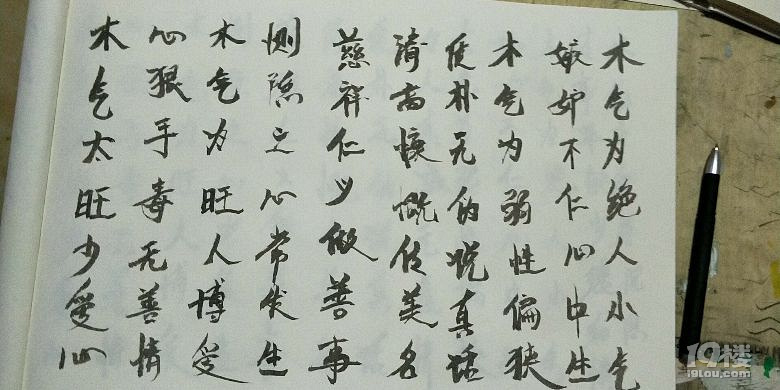 木气为绝人小气
嫉妒不仁心中生
木气为弱性偏狭
朴无伪说真话
清高慷慨传美名
慈祥仁义做善事
恻隐之心常发生
木气为旺人博爱
心狠手毒无善情
木气太旺少爱心
19楼
19lou.com